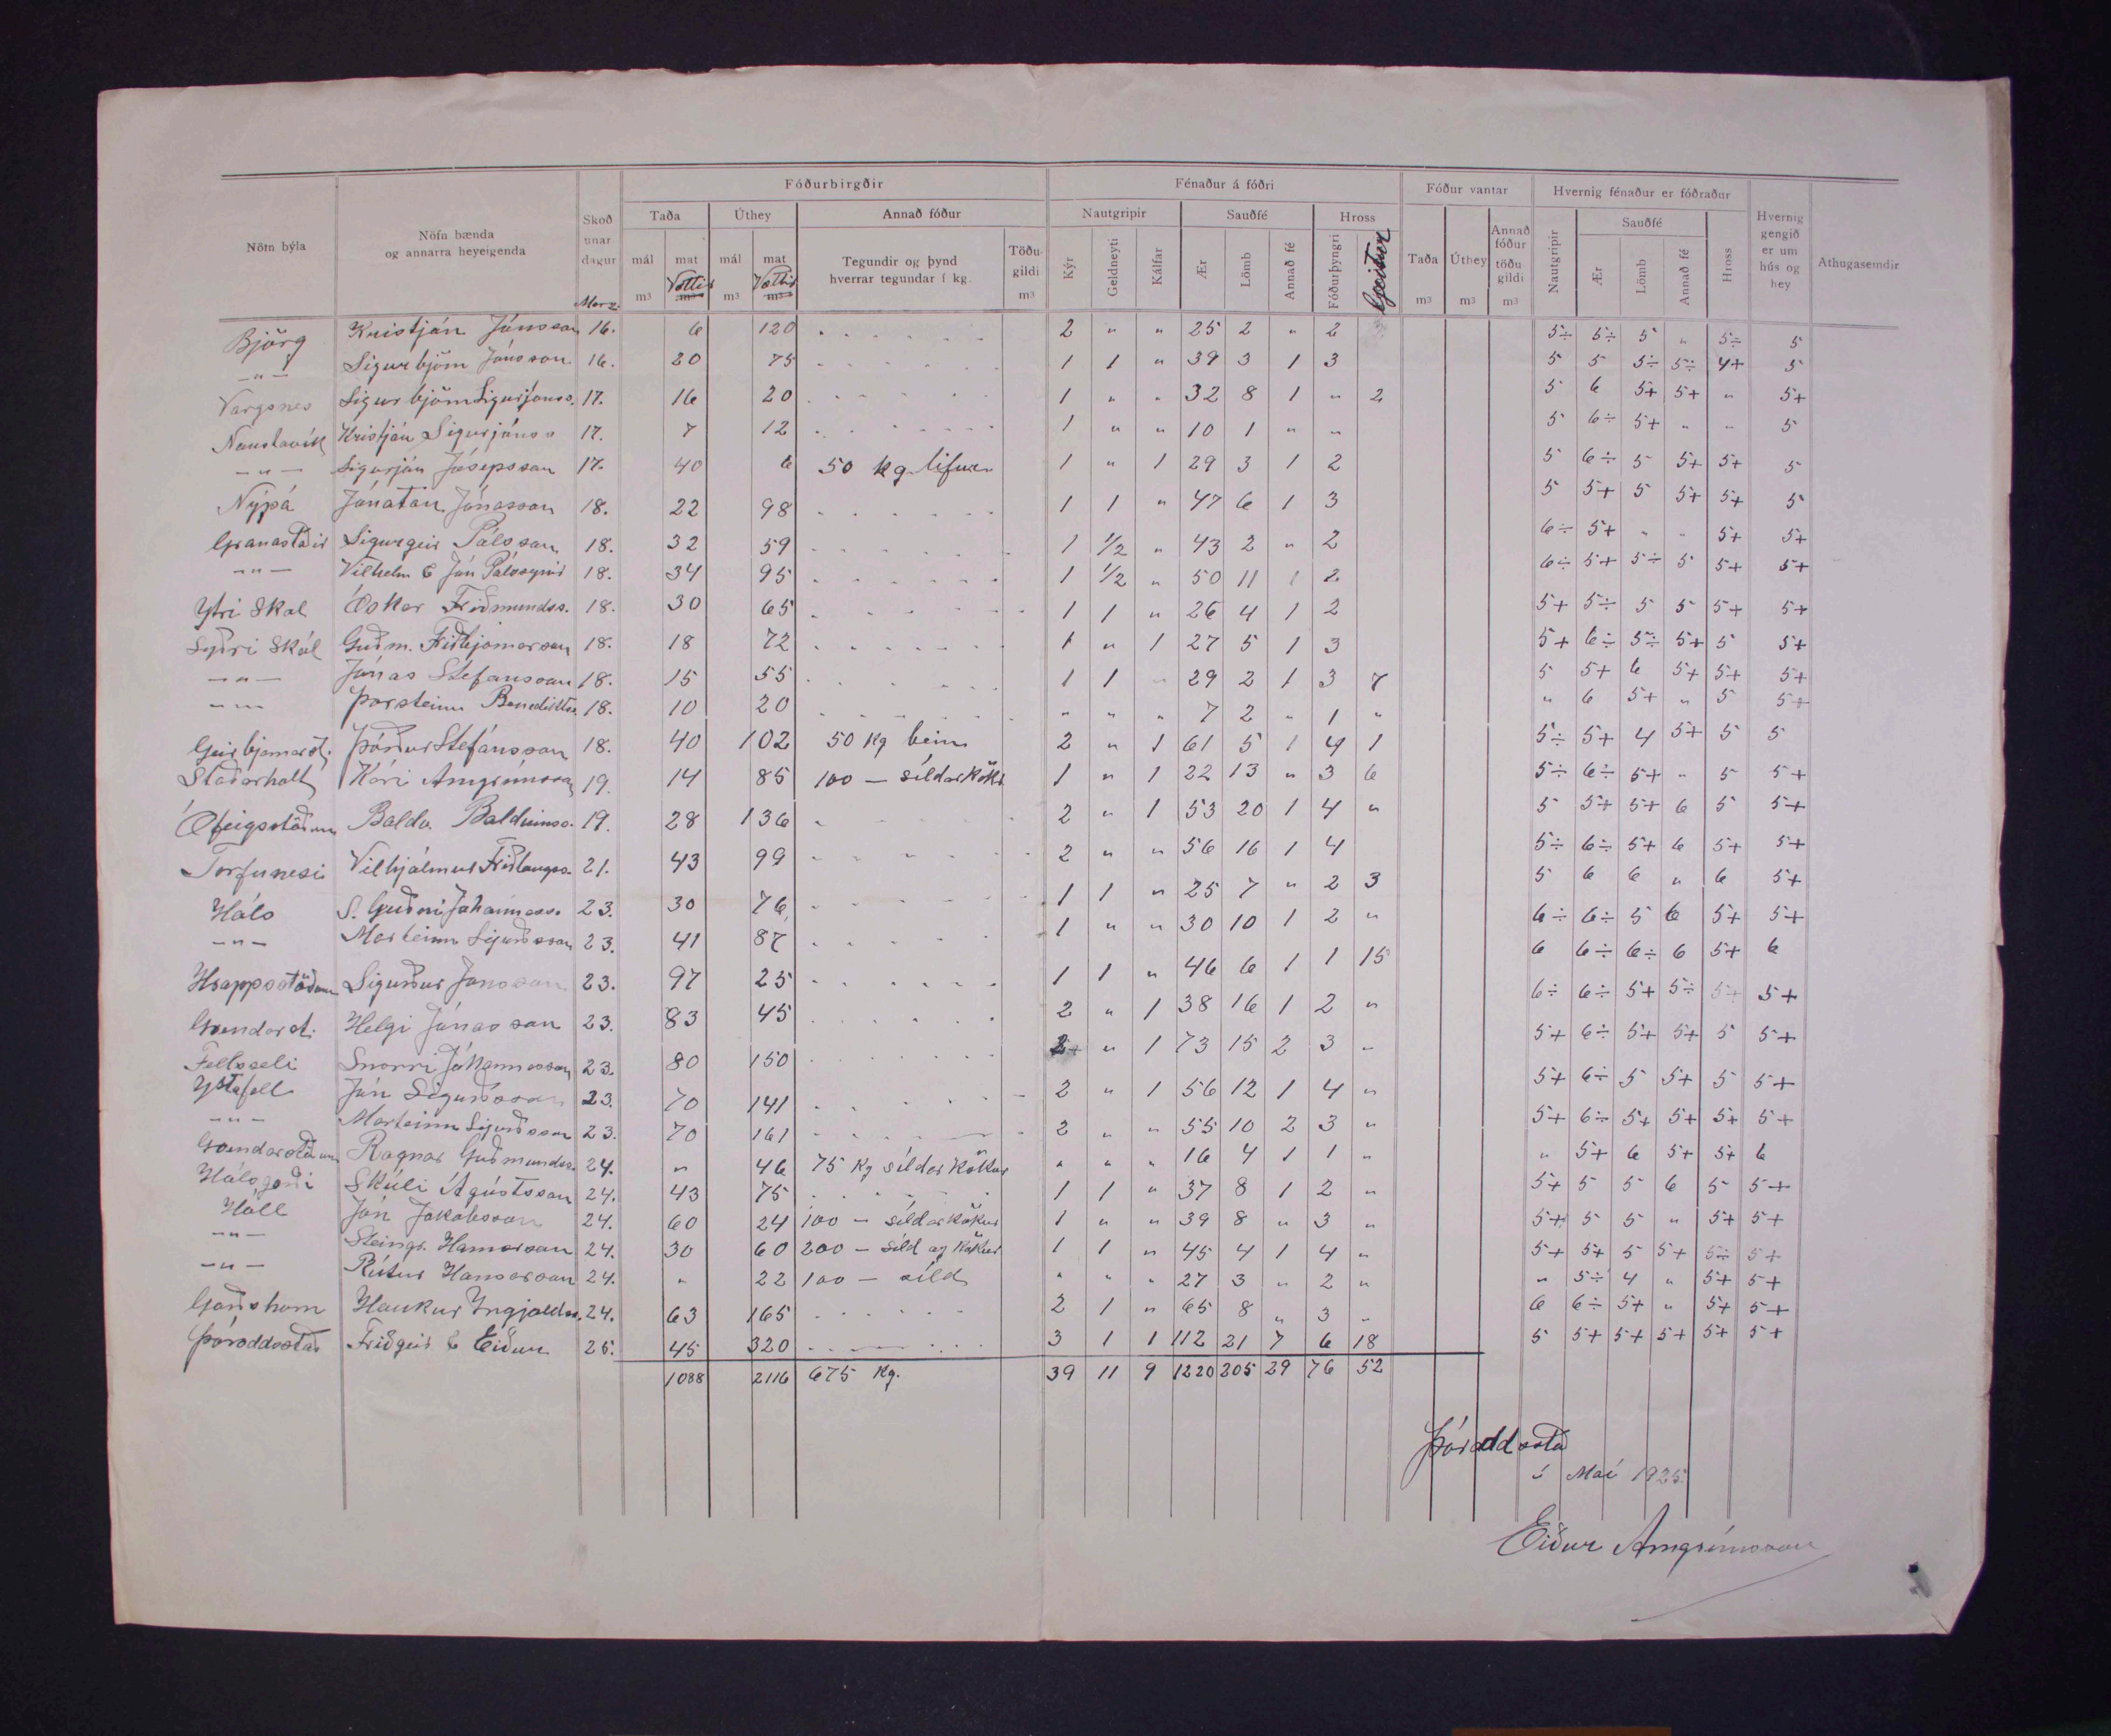 Fóðurbirgðir Fénaður á fóðri Fóður vantar Hvernig fénaður er fóðraður
Nöfn býla Nöfn bænda og annarra heyeigenda Skoðunardagur Taða Úthey Annað fóður Nautgripir Sauðfé Hross Sauðfé Hvernig gengið er um hús og hey Athugasemdir
mál m³ mat m³ Vættir mál m³ mat m³ Vættir Tegundir og þynd hverrar tegundar í kg. Töðugildi m³ Kýr Geldneyti Kálfar Ær Lömb Annað fé Fóðurþyngri Geitur Taða m³ Úthey m³ Annað fóður töðugildi m³ Nautgripir Ær Lömb Annað fé Hross
Marz
Björg Kristján Jónsson 16. 6 120 2 " " 25 2 " 2 5÷ 5÷ 5 " 5÷ 5
—"— Sigurbjörn Jónsson 16. 20 75 1 1 " 39 3 1 3 5 5 5÷ 5÷ 4+ 5
Vargsnes Sigurbjörn Sigurjónss. 17. 16 20 1 " " 32 8 1 " 2 5 6 5+ 5+ " 5+
Naustavík Kristján Sigurjónss 17. 7 12 1 " " 10 1 " " 5 6÷ 5+ " " 5
—"— Sigurján Jósepsson 17. 40 6 50 kg lifur 1 " 1 29 3 1 2 5 6÷ 5 5+ 5+ 5
Nýpá Jónatan Jónasson 18. 22 98 1 1 " 47 6 1 3 5 5+ 5 5+ 5+ 5
Granastaðir Sigurgeir Pálsson 18. 32 59 1 1/2 " 43 2 " 2 6÷ 5+ " " 5+ 5+
—"— Vilhelm & Jón Pálssynir 18. 34 95 1 1/2 " 50 11 1 2 6÷ 5+ 5÷ 5 5+ 5+
Ytri Skál Óskar Friðmundss. 18. 30 65 1 1 " 26 4 1 2 5+ 5÷ 5 5 5+ 5+
Syðri Skál Guðm. Friðbjarnarson 18. 18 72 1 " 1 27 5 1 3 5+ 6÷ 5÷ 5+ 5 5+
—"— Jónas Stefansson 18. 15 55 1 1 " 29 2 1 3 7 5 5+ 6 5+ 5+ 5+
—"— Þorsteinn Benediktss 18. 10 20 " " " 7 2 " 1 " " 6 5+ " 5 5+
Geirbjarnarst. Þórður Stefánsson 18. 40 102 50 kg bein 2 " 1 61 5 1 4 1 5÷ 5+ 4 5+ 5 5
Staðarholt Kári Arngrímsson 19. 14 85 100 — síldarkök. 1 " 1 22 13 " 3 6 5÷ 6÷ 5+ " 5 5+
Ófeigsstöðum Baldv. Baldvinss. 19. 28 136 2 " 1 53 20 1 4 " 5 5+ 5+ 6 5 5+
Torfunesi Vilhjálmur Friðlaugss. 21. 43 99 2 " " 56 16 1 4 5÷ 6÷ 5+ 6 5+ 5+
Háls S. Guðni Jóhanness. 23. 30 76 1 1 " 25 7 " 2 3 5 6 6 " 6 5+
—"— Marteinn Sigurðsson 23. 41 87 1 " " 30 10 1 2 " 6÷ 6÷ 5 6 5+ 5+
Hrappsstöðum Sigurður Jónsson 23. 97 25 1 1 " 46 6 1 1 15 6 6÷ 6÷ 6 5+ 6
Landarst. Helgi Jónasson 23. 83 45 2 " 1 38 16 1 2 " 6÷ 6÷ 5+ 5÷ 5+ 5+
Fellsseli Snorri Jóhannesson 23. 80 150 2+ " 1 73 15 2 3 " 5+ 6÷ 5+ 5+ 5 5+
Ystafell Jón Sigurðsson 23. 70 141 2 " 1 56 12 1 4 " 5+ 6÷ 5 5+ 5 5+
—"— Marteinn Sigurðsson 23. 70 161 2 " " 55 10 2 3 " 5+ 6÷ 5+ 5+ 5+ 5+
Ragnar Guðmundss. 24. " 46 75 kg síldarkökur " " " 16 4 1 1 " " 5+ 6 5+ 5+ 6
Hálsgerði Skúli Ágústsson 24. 43 75 1 1 " 37 8 1 2 " 5+ 5 5 6 5 5+
Háll Jón Jakobsson 24. 60 24 100 — síldarkökur 1 " " 39 8 " 3 " 5+ 5 5 " 5+ 5+
—"— Steingr. Hansson 24. 30 60 200 — síld og kökur 1 1 " 45 4 1 4 " 5+ 5+ 5 5+ 5÷ 5+
—"— Rútur Hansson 24. " 22 100 — síld " " " 27 3 " 2 " " 5÷ 4 " 5+ 5+
Garðshorn Haukur Yngjaldss. 24. 63 165 2 1 " 65 8 " 3 " 6 6÷ 5+ " 5+ 5+
Þóroddsstað Friðgeir & Eiður 25. 45 320 3 1 1 112 21 7 6 18 5 5+ 5+ 5+ 5+ 5+
1088 2116 675 kg. 39 11 9 1220 205 29 76 52
Þóroddsstað
í Maí 1925.
Eiður Arngrímsson